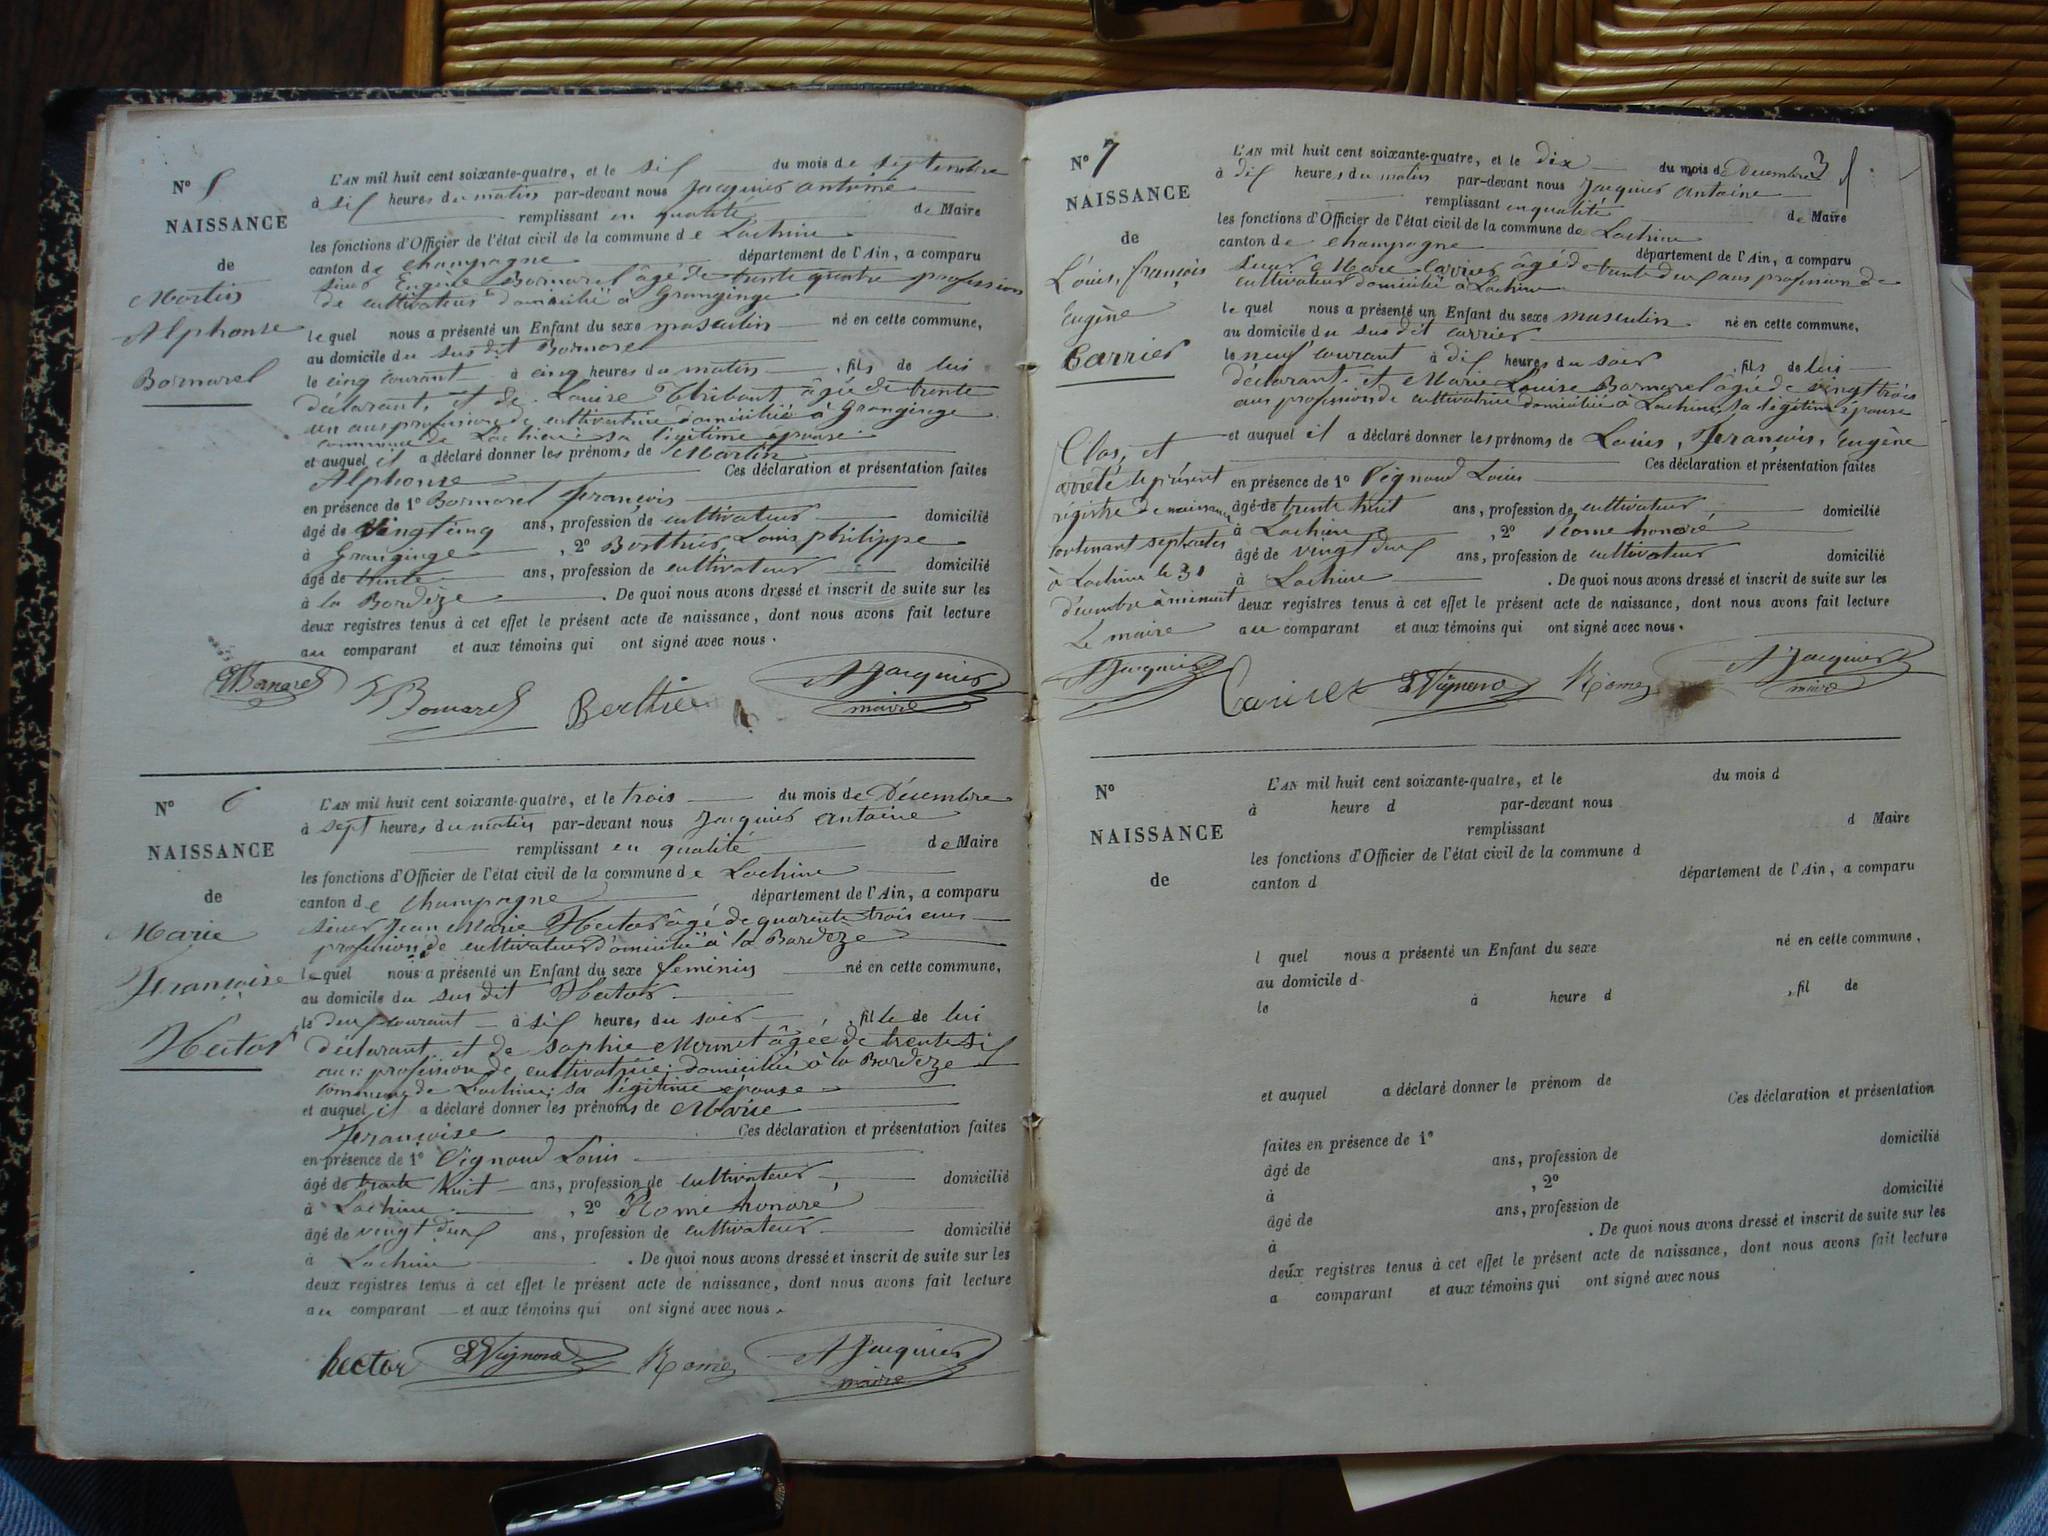 N° 5
NAISSANCE
de
Martin
Alphonse
Bornarel
L'AN mil huit cent soixante-quatre, et le six du mois de septembre
à six heures du matin par-devant nous Jacquier antoine
remplissant en qualité de Maire
les fonctions d'Officier de l'état civil de la commune de Lochieu
canton de champagne département de l'Ain, a comparu
sieur Eugène Bornarel âgé de trente quatre profession
de cultivateur domicilié à Granginge
lequel nous a présenté un Enfant du sexe masculin né en cette commune,
au domicile du sus dit Bornarel
le cinq courant à cinq heures du matin, fils de lui
déclarant, et de Louise Thibaut âgée de trente
un ans profession de cultivatrice domiciliée à Granginge
commune de Lochieu; sa légitime épouse
et auquel il a déclaré donner les prénoms de Martin
Alphonse Ces déclaration et présentation faites
en présence de 1° Bornarel François
âgé de vingt cinq ans, profession de cultivateur domicilié
à Granginge, 2° Berthier Louis philippe
âgé de trente ans, profession de cultivateur domicilié
à la Bordèze. De quoi nous avons dressé et inscrit de suite sur les
deux registres tenus à cet effet le présent acte de naissance, dont nous avons fait lecture
au comparant et aux témoins qui ont signé avec nous.
Bornarel F Bornarel Berthier A Jacquier
maire
N° 6
NAISSANCE
de
Marie
Françoise
Hector
L'AN mil huit cent soixante-quatre, et le trois du mois de Décembre
à sept heures du matin par-devant nous Jacquier antoine
remplissant en qualité de Maire
les fonctions d'Officier de l'état civil de la commune de Lochieu
canton de champagne département de l'Ain, a comparu
sieur Jean Marie Hector âgé de quarente trois ans
profession de cultivateur domicilié à la Bordèze
lequel nous a présenté un Enfant du sexe feminin né en cette commune,
au domicile du sus dit Hector
le deux courant à six heures du soir, fille de lui
déclarant et de sophie Mermet âgée de trente six
ans profession de cultivatrice domiciliée à la Bordèze
commune de Lochieu; sa légitime épouse
et auquel il a déclaré donner les prénoms de Marie
Françoise Ces déclaration et présentation faites
en présence de 1° Vignaud Louis
âgé de trente huit ans, profession de cultivateur domicilié
à Lochieu, 2° Rome honoré
âgé de vingt deux ans, profession de cultivateur domicilié
à Lochieu. De quoi nous avons dressé et inscrit de suite sur les
deux registres tenus à cet effet le présent acte de naissance, dont nous avons fait lecture
au comparant et aux témoins qui ont signé avec nous.
hector L Vignaud Rome A Jacquier
maire
N° 7
NAISSANCE
de
Louis, françois
Eugène
Carrier
L'AN mil huit cent soixante-quatre, et le dix du mois de Décembre 3
à dix heures du matin par-devant nous Jacquier antoine
remplissant en qualité de Maire
les fonctions d'Officier de l'état civil de la commune de Lochieu
canton de champagne département de l'Ain, a comparu
sieur Marc Carrier âgé de trente deux ans profession de
cultivateur domicilié à Lochieu
lequel nous a présenté un Enfant du sexe masculin né en cette commune,
au domicile du sus dit carrier
le neuf courant à dix heures du soir, fils de lui
déclarant, et Marie Louise Bornarel âgée de vingt trois
ans profession de cultivatrice domiciliée à Lochieu, sa légitime épouse
et auquel il a déclaré donner les prénoms de Louis, François, Eugène
Ces déclaration et présentation faites
en présence de 1° Vignaud Louis
âgé de trente huit ans, profession de cultivateur domicilié
à Lochieu, 2° Rome honoré
âgé de vingt deux ans, profession de cultivateur domicilié
à Lochieu. De quoi nous avons dressé et inscrit de suite sur les
deux registres tenus à cet effet le présent acte de naissance, dont nous avons fait lecture
au comparant et aux témoins qui ont signé avec nous.
Clos, et
arrêté le présent
régistre de naissance
contenant sept actes
à Lochieu le 31
décembre à minuit
Le maire
A Jacquier Carrier L Vignaud Rome A Jacquier
maire
N°
NAISSANCE
de
L'AN mil huit cent soixante-quatre, et le du mois d
à heure d par-devant nous
remplissant d Maire
les fonctions d'Officier de l'état civil de la commune d
canton d département de l'Ain, a comparu
l quel nous a présenté un Enfant du sexe né en cette commune,
au domicile d
le à heure d , fil de
et auquel a déclaré donner le prénom de
Ces déclaration et présentation
faites en présence de 1° domicilié
âgé de ans, profession de
à , 2°
âgé de ans, profession de domicilié
à . De quoi nous avons dressé et inscrit de suite sur les
deux registres tenus à cet effet le présent acte de naissance, dont nous avons fait lecture
a comparant et aux témoins qui ont signé avec nous